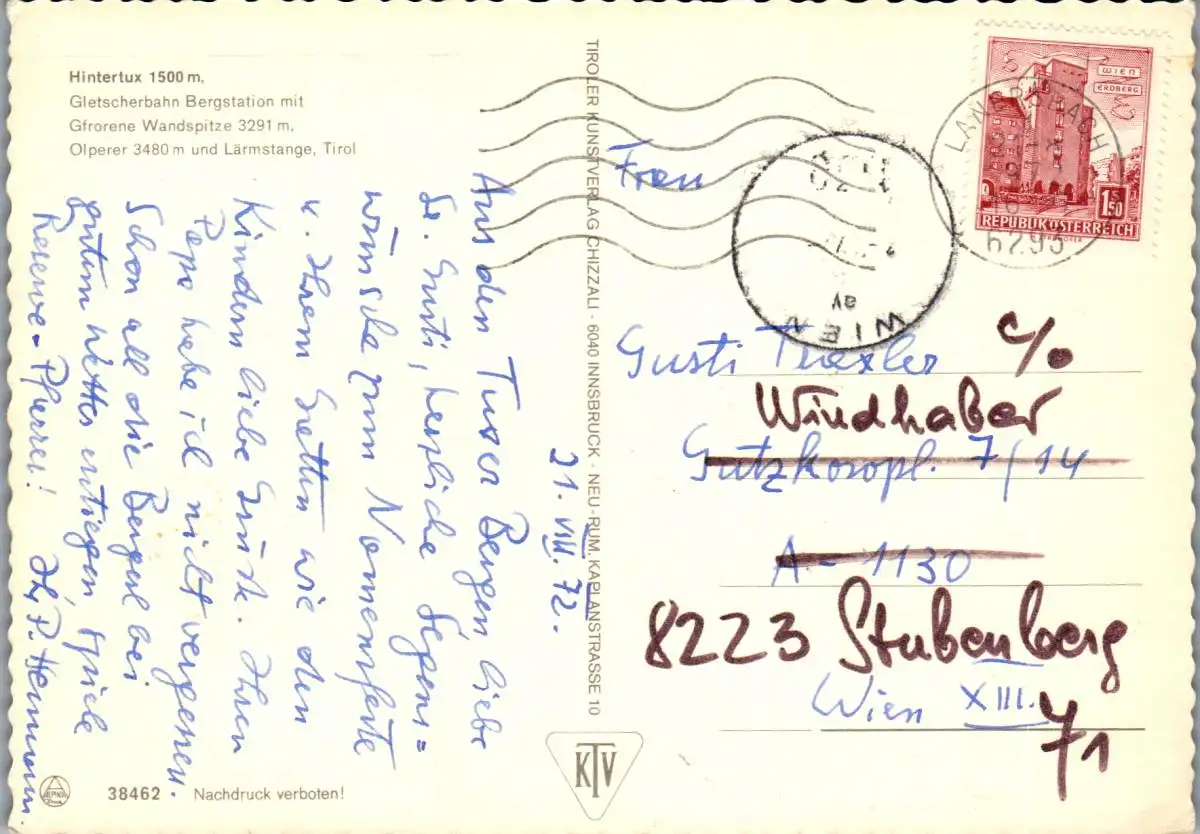 Hintertux 1500 m,
Gletscherbahn Bergstation mit
Gfrorene Wandspitze 3291 m,
Olperer 3480 m und Lärmstange, Tirol
21. VIII. 72.
Aus den Tuxer Bergen, liebe
Fr. Gusti, herzliche Segens=
wünsche zum Namensfeste
u. Ihrem Gatten wie den
Kindern liebe Grüße. Ihren
Papa habe ich nicht vergessen.
Schon all die Bergerl bei
gutem Wetter
Reserve=Pfarrer! Ihr P. Hermann.
38462 Nachdruck verboten!
ALPINA
TIROLER KUNSTVERLAG CHIZZALI - 6040 INNSBRUCK - NEU-RUM, KAPLANSTRASSE 10
KTV
WIEN
ERDBERG
1.50
S
REPUBLIK ÖSTERREICH
LANERSBACH
6293
WIEN
Frau
Gusti Traxler
c/o
Windhaber
Gutzkowpl. 7/14
A-1130
8223 Stubenberg
Wien XIII.
71